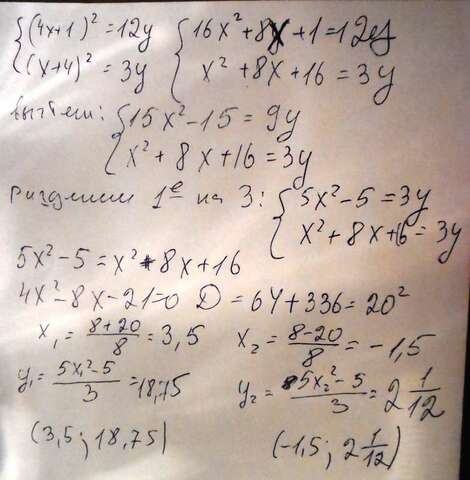 {(4x+1)² = 12y {16x² + 8x + 1 = 12y
(x+4)² = 3y x² + 8x + 16 = 3y
вычтем: {15x² - 15 = 9y
x² + 8x + 16 = 3y
разделим 1ᵉ на 3: {5x² - 5 = 3y
x² + 8x + 16 = 3y
5x² - 5 = x² + 8x + 16
4x² - 8x - 21 = 0 D = 64 + 336 = 20²
x₁ = (8+20)/8 = 3,5 x₂ = (8-20)/8 = -1,5
y₁ = (5x₁² - 5)/3 = 18,75 y₂ = (5x₂² - 5)/3 = 2 1/12
(3,5 ; 18,75) (-1,5 ; 2 1/12)